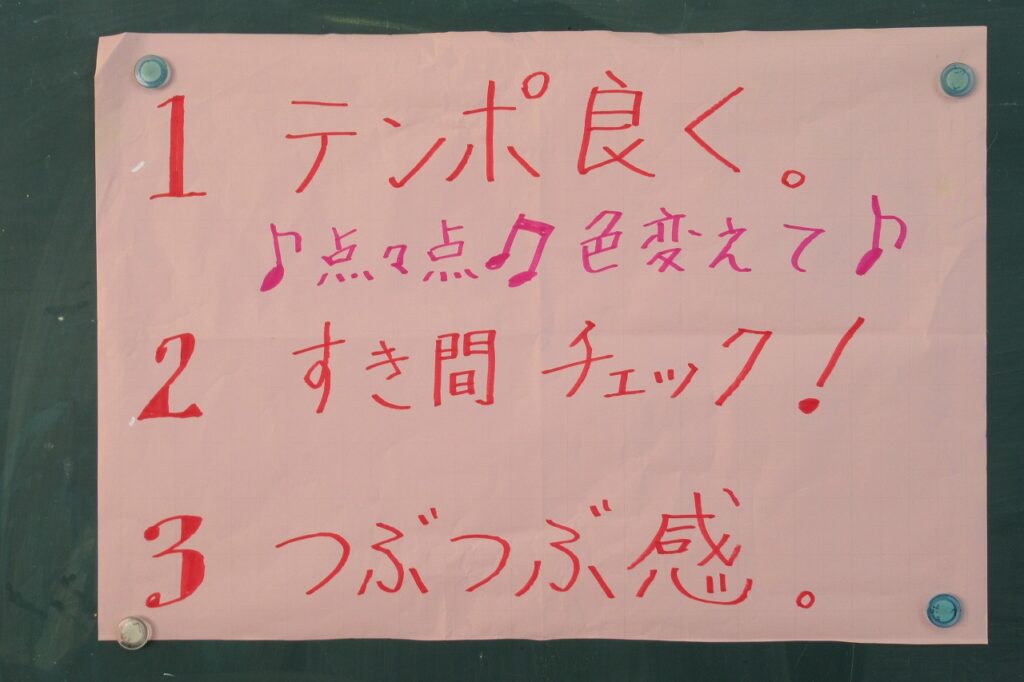 1 テンポ良く。
♪点々点♫色変えて♪
2 すき間チェック!
3 つぶつぶ感。